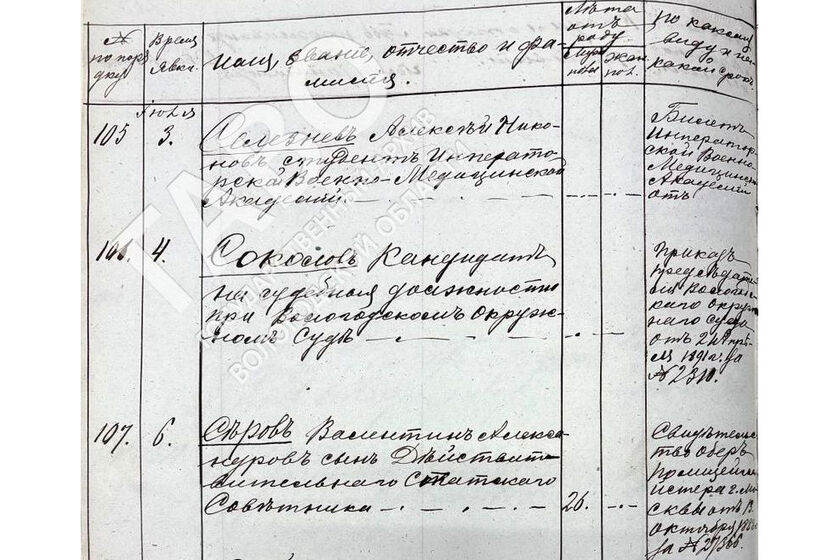 №
по поря
дку.
Время
Явки.
Имя, звание, отчество и фа-
милія.
Лѣта
отъ
роду
Муж.
пола
жен.
пол.
По какому
виду и на
какой срокъ
Іюля
105
3.
Селезневъ Алексѣй Нико-
новъ студентъ Император-
ской Военно-Медицинской
Академіи
Билетъ
Император-
ской Военно-
Медицинской
Академіи
отъ
106.
4.
Соколовъ Кандидатъ
на судебныя должности
при Вологодскомъ Окруж-
номъ Судѣ
Приказъ
Предсѣдате
ля Вологод-
скаго Окруж
наго Суда
отъ
1891 г. за
№ 2310.
107.
6.
Сѣровъ Валентинъ Алекса-
ндровъ сынъ Дѣйстви-
тельнаго Статскаго
Совѣтника
26.
Свидѣтельс
тво Оберъ
Полицейм
йстера г. Мо
сквы отъ 13
октября
за № 27366
ГАВО
ГОСУДАРСТВЕННЫЙ АРХИВ
ВОЛОГОДСКОЙ ОБЛАСТИ